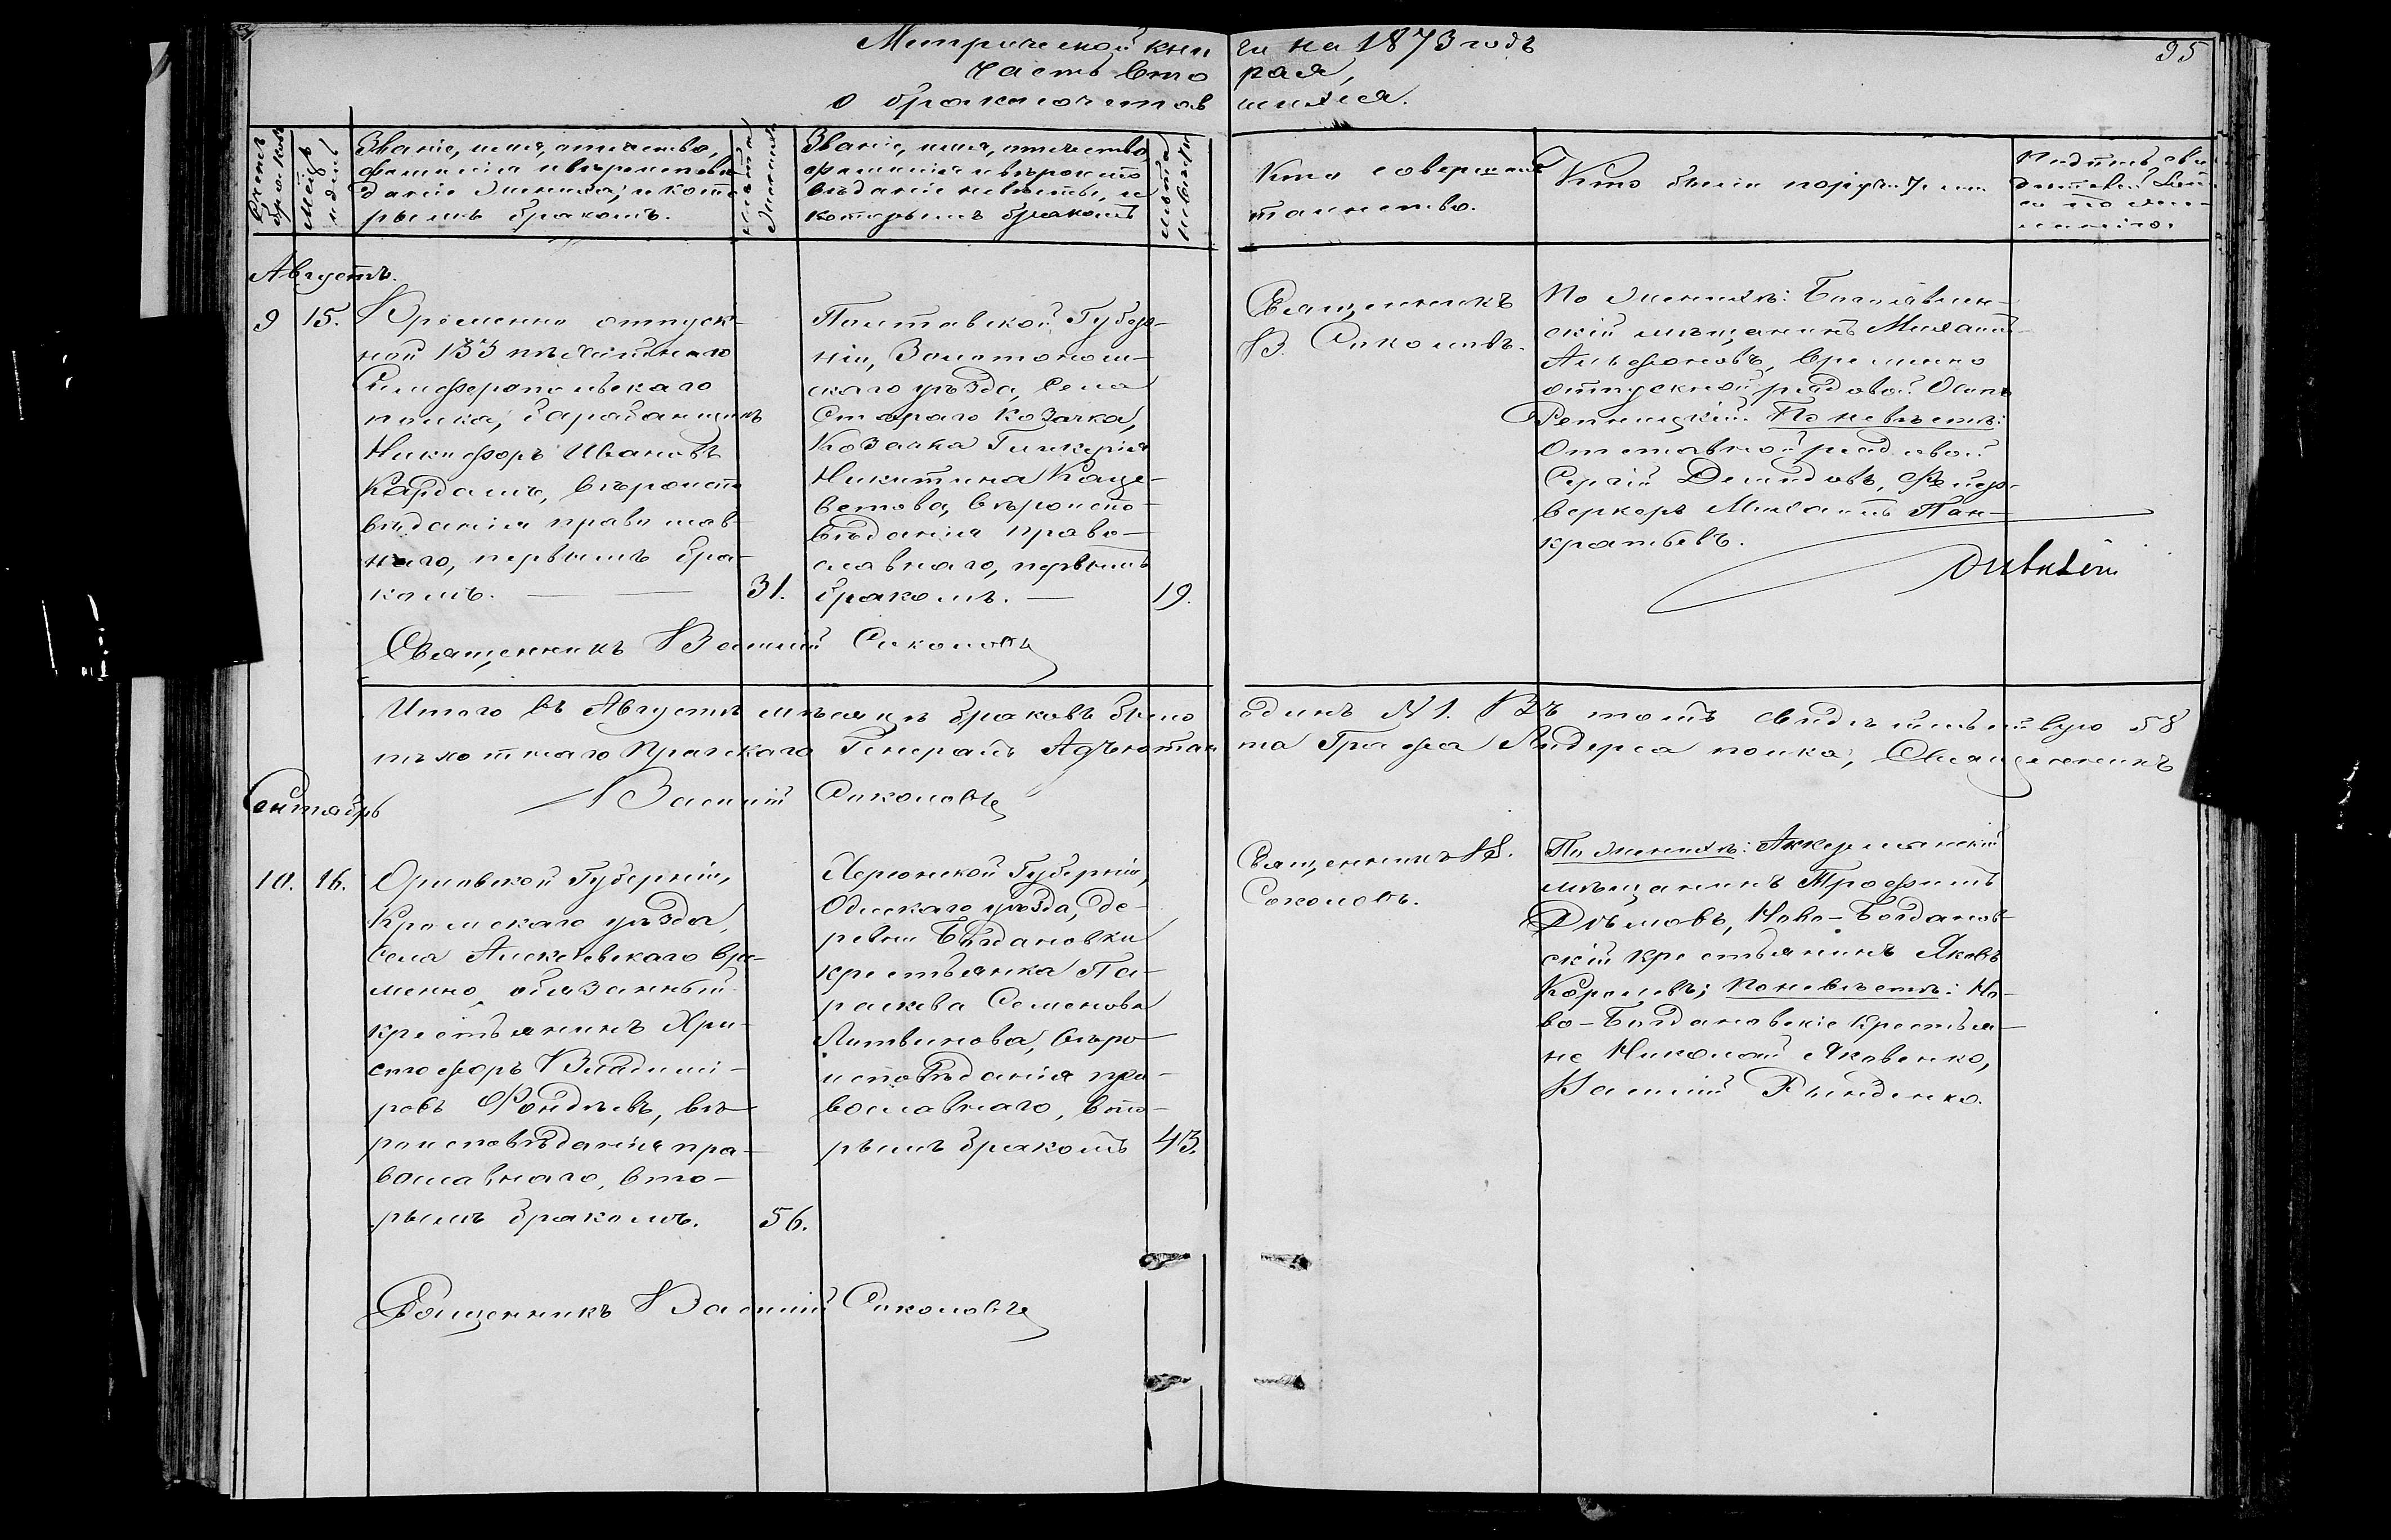 Метрической кни ги на 1873 годъ
часть вто рая,
о бракосочетав шихся.
95
Счетъ браковъ
Мѣсяцъ и день
Званіе, имя, отчество,
фамилія и вѣроисповѣ
даніе жениха; и кото
рымъ бракомъ.
лѣта жениха
Званіе, имя, отчество
фамилія и вѣроиспо
вѣданіе невѣсты, и
которымъ бракомъ
лѣта невѣсты
Кто совершалъ
таинство.
Кто были поручители
Подпись сви
дѣтелей
по же-
ланію.
Августъ.
9
15.
Временно отпуск-
ной 133 пѣхотнаго
Симферопольскаго
полка, барабанщикъ
Никифоръ Ивановъ
Кардашъ, вѣроиспо
вѣданія православ-
наго, первымъ бра-
комъ.
31.
Полтавской Губер-
ніи, Золотонош-
скаго уѣзда, села
Стараго Козачка,
Козачка Гликерія
Никитина Каце-
ветова, вѣроиспо-
вѣданія право-
славнаго, первымъ
бракомъ.
19.
Священникъ
В. Соколовъ.
По женихѣ:
скій мѣщанинъ Михаилъ
временно
отпускной рядовой Осипъ
По невѣстѣ:
Отставной рядовой
Сергій Демидовъ, Фейер-
веркеръ Михаилъ Пан-
кратьевъ.
Священникъ Василій Соколовъ
Итого въ Августѣ мѣсяцѣ браковъ было одинъ № 1. Въ томъ свидѣтельствую 58
пѣхотнаго Прагскаго Генералъ Адъютан та Графа Лидерса полка, Священникъ
Василій Соколовъ
Сентябрь
10.
16.
Орловской Губерніи,
Кромскаго уѣзда,
села Алексѣевскаго вре-
менно обязанный
крестьянинъ Хри-
стофоръ Владимі-
ровъ Фондѣевъ, вѣ-
роисповѣданія пра-
вославнаго, вто-
рымъ бракомъ.
56.
Херсонской Губерніи,
Одесскаго уѣзда, де-
ревни Богдановки
крестьянка Па-
раскева Семенова
Литвинова, вѣро-
исповѣданія пра-
вославнаго, вто-
рымъ бракомъ
43.
Священникъ В.
Соколовъ.
По женихѣ: Аккерманскій
мѣщанинъ Трофимъ
Ново-Богданов-
скій крестьянинъ Яковъ
Королевъ; по невѣстѣ: Но-
во-Богдановскіе крестья-
не Николай Яковенко,
Василій Рынденко.
Священникъ Василій Соколовъ